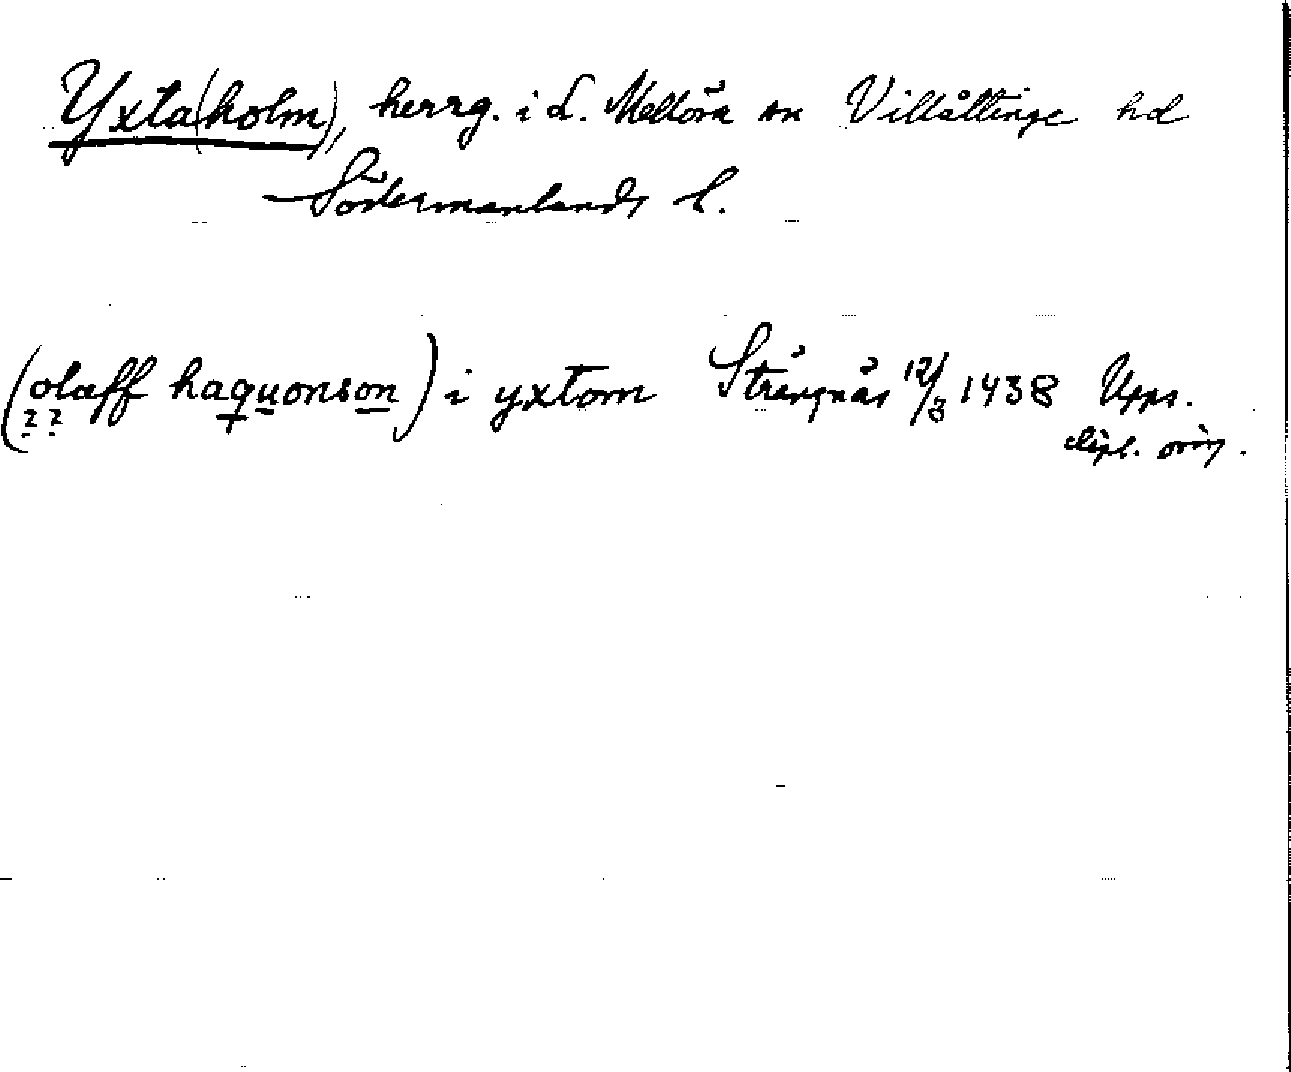 Yxta(holm), herrg. i L. Mellösa sn Villåttinge hd
Södermanlands l.
(olaff haquonson) i yxtom Strängnäs 12/3 1438 Upps.
? ?
dipl. orig.